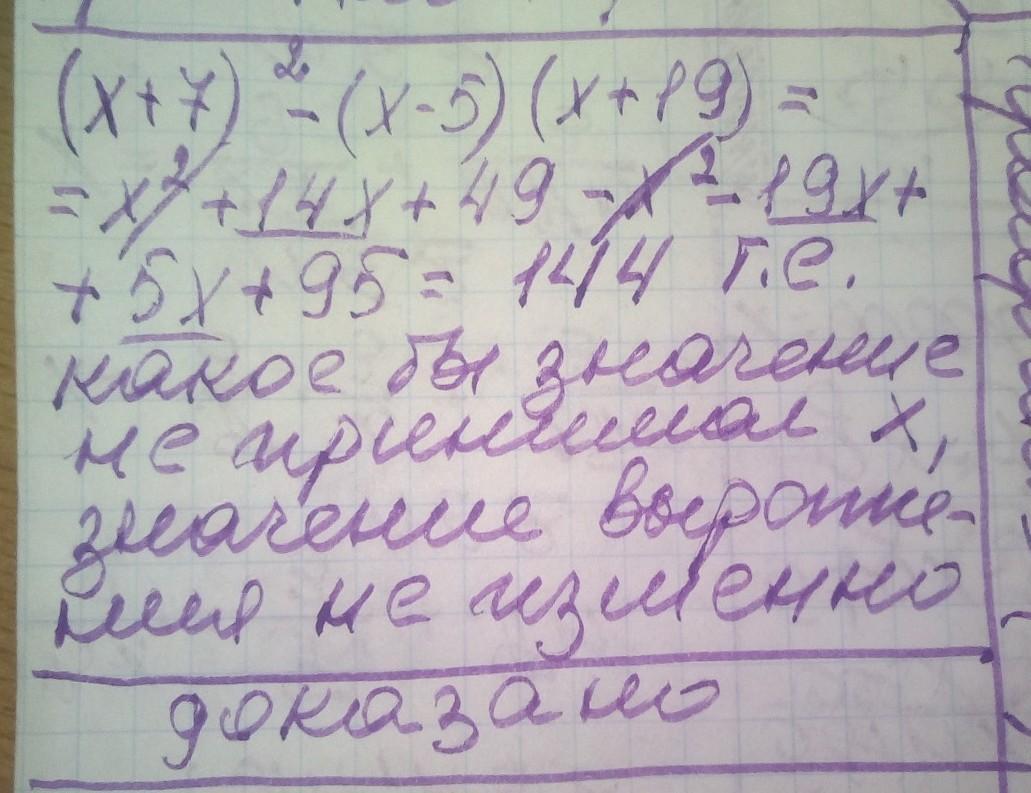 (x+7)² - (x-5)(x+19) =
= x² + 14x + 49 - x² - 19x +
+ 5x + 95 = 144 т.е.
какое бы значение
не принимал x,
значение выраже-
ния не изменно
доказано